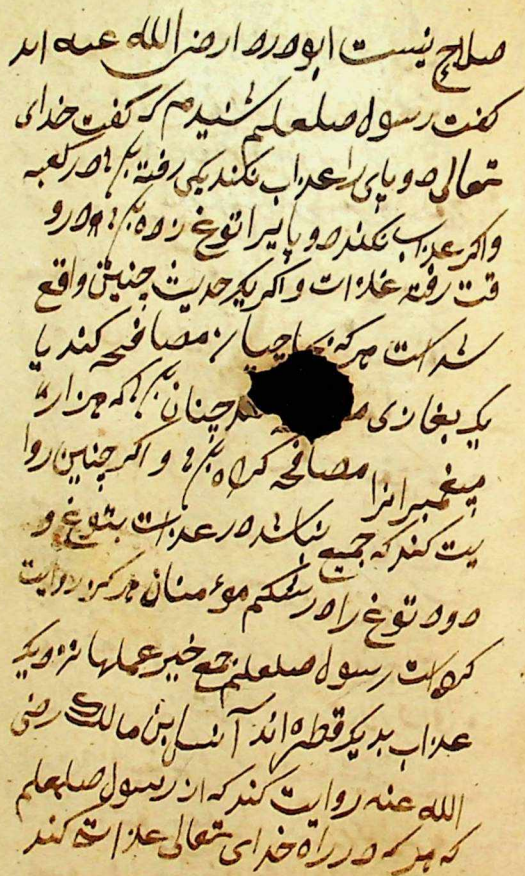 صلاح نیست ابو دردا رضی الله عنه اند
کفت رسول صلعلم شنیدم که کفت خدای
تعالی دو پای را عذاب نکند یکی رفته در کعبه
واکر عذاب نکند دو پایرا توغ زده در و
قت رفته غذات واکر یکر حدیث چنین واقع
شد است هر که با حاجیان مصافحه کند یا
یک بغازی چنان که هزار
میغمبرانرا مصافحه کرده و اکر چنین روا
یت کند که جمیع بتوغ و
دود توغ را در شکم موءمنان هرکز روایت
کرده است رسول صلعلم جمع خیر عملها
عذاب بدیکر قطره اند آنس ابن مالک رضی
الله عنه روایت کند که از رسول صلعلم
که هر که در راه خدای تعالی غذات کند